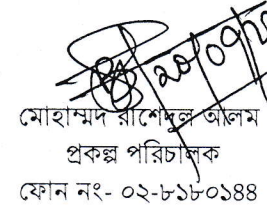 ২০/০৭/২
মোহাম্মদ রাশেদুল আলম
প্রকল্প পরিচালক
ফোন নং- ০২-৮১৮০১৪৪